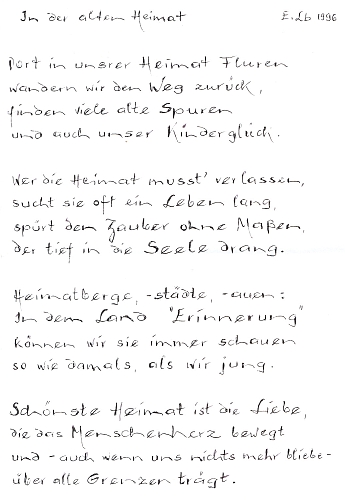 In der alten Heimat E. Lb 1996
Dort in unsrer Heimat Fluren
wandern wir den Weg zurück,
finden viele alte Spuren
und auch unser Kinderglück.
Wer die Heimat musst' verlassen,
sucht sie oft ein Leben lang,
spürt den Zauber ohne Maßen,
der tief in die Seele drang.
Heimatberge, -städte, -auen:
In dem Land "Erinnerung"
können wir sie immer schauen
so wie damals, als wir jung.
Schönste Heimat ist die Liebe,
die das Menschenherz bewegt
und - auch wenn uns nichts mehr bliebe -
über alle Grenzen trägt.